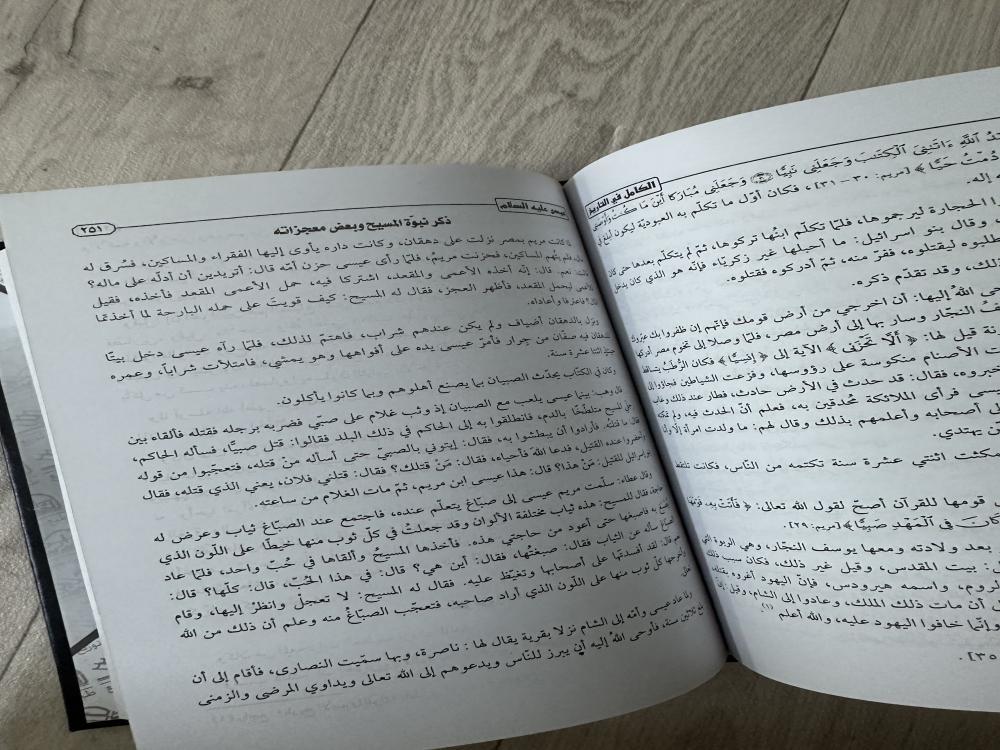 الكامل في التاريخ
ٱللَّهِ ءَاتَىٰنِيَ ٱلْكِتَٰبَ وَجَعَلَنِي نَبِيًّا ﴿٣٠﴾ وَجَعَلَنِي مُبَارَكًا أَيْنَ مَا كُنتُ وَأَوْصَٰنِي
دُمْتُ حَيًّا﴾ [مريم: ٣٠ – ٣١]، فكان أوّل ما تكلّم به العبوديّة ليكون أبلغ في
إله.
الحجارة ليرجموها، فلمّا تكلّم ابنُها تركوها، ثمّ لم يتكلّم بعدها حتى كان
وقال بنو اسرائيل: ما أحبلها غير زكرياء فإنّه هو الذي كان يدخل
طلبوه ليقتلوه، ففرّ منه، ثم أدركوه فقتلوه.
ذلك، وقد تقدّم ذكره.
اللهُ إليها: أن اخرجي من أرض قومك فإنّهم إن ظفروا بك عيّروك
النجّار وسار بها إلى أرض مصر، فلمّا وصلا إلى تخوم مصر أدركها
قيل لها: ﴿أَلَّا تَحْزَنِي﴾ الآية إلى ﴿إِنسِيًّا﴾ فكان الرُّطَبُ يتساقط
الأصنام منكوسة على رؤوسها، وفزعت الشياطين فجاؤوا إلى
فقال: قد حدث في الأرض حادث، فطار عند ذلك
فرأى الملائكة مُحدقين به، فعلم أنّ الحدث فيه، ولم
إلى أصحابه وأعلمهم بذلك وقال لهم: ما ولدت امرأة إلّا
يهتدي.
مكثت اثنتي عشرة سنة تكتمه من النّاس، فكانت تلتقط
قومها للقرآن أصحّ لقول الله تعالى: ﴿فَأَتَتْ بِهِۦ قَوْمَهَا
كَانَ فِي ٱلْمَهْدِ صَبِيًّا﴾ [مريم: ٢٩].
بعد ولادته ومعها يوسف النجّار، وهي الربوة التي
بيت المقدس، وقيل غير ذلك، فكان سبب ذلك
واسمه هيرودس، فإنّ اليهود أغروه بقتله،
أن مات ذلك الملك، وعادوا إلى الشام، وقيل: إنّ
وإنّما خافوا اليهود عليه، والله أعلم (١)
٣٥].
عيسى عليه السلام
٢٥١
ذكر نبوّة المسيح وبعض معجزاته
كانت مريم بمصر نزلت على دهقان، وكانت داره يأوى إليها الفقراء والمساكين، فسُرق له
فلم يتّهم المساكين، فحزنت مريمُ، فلمّا رأى عيسى حزن أمّه قال: أتريدين أن أدلّه على ماله؟
نعم. قال: إنّه أخذه الأعمى والمقعد، اشتركا فيه، حمل الأعمى المقعد فأخذه، فقيل
للأعمى ليحمل المقعد، فأظهر العجز، فقال له المسيح: كيف قويتَ على حمله البارحة لما أخذتما
المال؟ فاعترفا وأعاداه.
ونزل بالدهقان أضياف ولم يكن عندهم شراب، فاهتمّ لذلك، فلمّا رآه عيسى دخل بيتًا
للدهقان فيه صفّان من جرار فأمرّ عيسى يده على أفواهها وهو يمشي، فامتلأت شراباً، وعمره
حينئذٍ اثنتا عشرة سنة.
وكان في الكتّاب يحدّث الصبيان بما يصنع أهلوهم وبما كانوا يأكلون.
قال وهب: بينما عيسى يلعب مع الصبيان إذ وثب غلام على صبيّ فضربه برجله فقتله فألقاه بين
رجلي المسيح متلطّخًا بالدم، فانطلقوا به إلى الحاكم في ذلك البلد فقالوا: قتل صبيًّا، فسأله الحاكم،
قال: ما قتلتُه. فأرادوا أن يبطشوا به، فقال: إيتوني بالصبيّ حتى أسأله منْ قتله، فتعجّبوا من قوله
وأحضروا عنده القتيل، فدعا اللهَ فأحياه، فقال: مَنْ قتلك؟ فقال: قتلني فلان، يعني الذي قتله، فقال
بنو اسرائيل للقتيل: مَنْ هذا؟ قال: هذا عيسى ابن مريم، ثمّ مات الغلام من ساعته.
وقال عطاء: سلّمت مريم عيسى إلى صبّاغ يتعلّم عنده، فاجتمع عند الصبّاغ ثياب وعرض له
حاجة، فقال للمسيح: هذه ثياب مختلفة الألوان وقد جعلتُ في كلّ ثوب منها خيطًا على اللّون الذي
يُصبغ به فاصبغها حتى أعود من حاجتي هذه. فأخذها المسيحُ وألقاها في حُبّ واحد، فلمّا عاد
الصبّاغ سأله عن الثياب فقال: صبغتُها، فقال: أين هي؟ قال: في هذا الحُبّ، قال: كلّها؟ قال:
نعم، قال: لقد أفسدتَها على أصحابها وتغيّظ عليه. فقال له المسيح: لا تعجلْ وانظرْ إليها، وقام
وأخرجها كلّ ثوب منها على اللّون الذي أراد صاحبه، فتعجّب الصبّاغُ منه وعلم أن ذلك من الله
تعالى.
ولمّا عاد عيسى وأمّه إلى الشام نزلا بقرية يقال لها: ناصرة، وبها سمّيت النصارى، فأقام إلى أن
بلغ ثلاثين سنة، فأوحى اللهُ إليه أن يبرز للنّاس ويدعوهم إلى الله تعالى ويداوي المرضى والزمنى